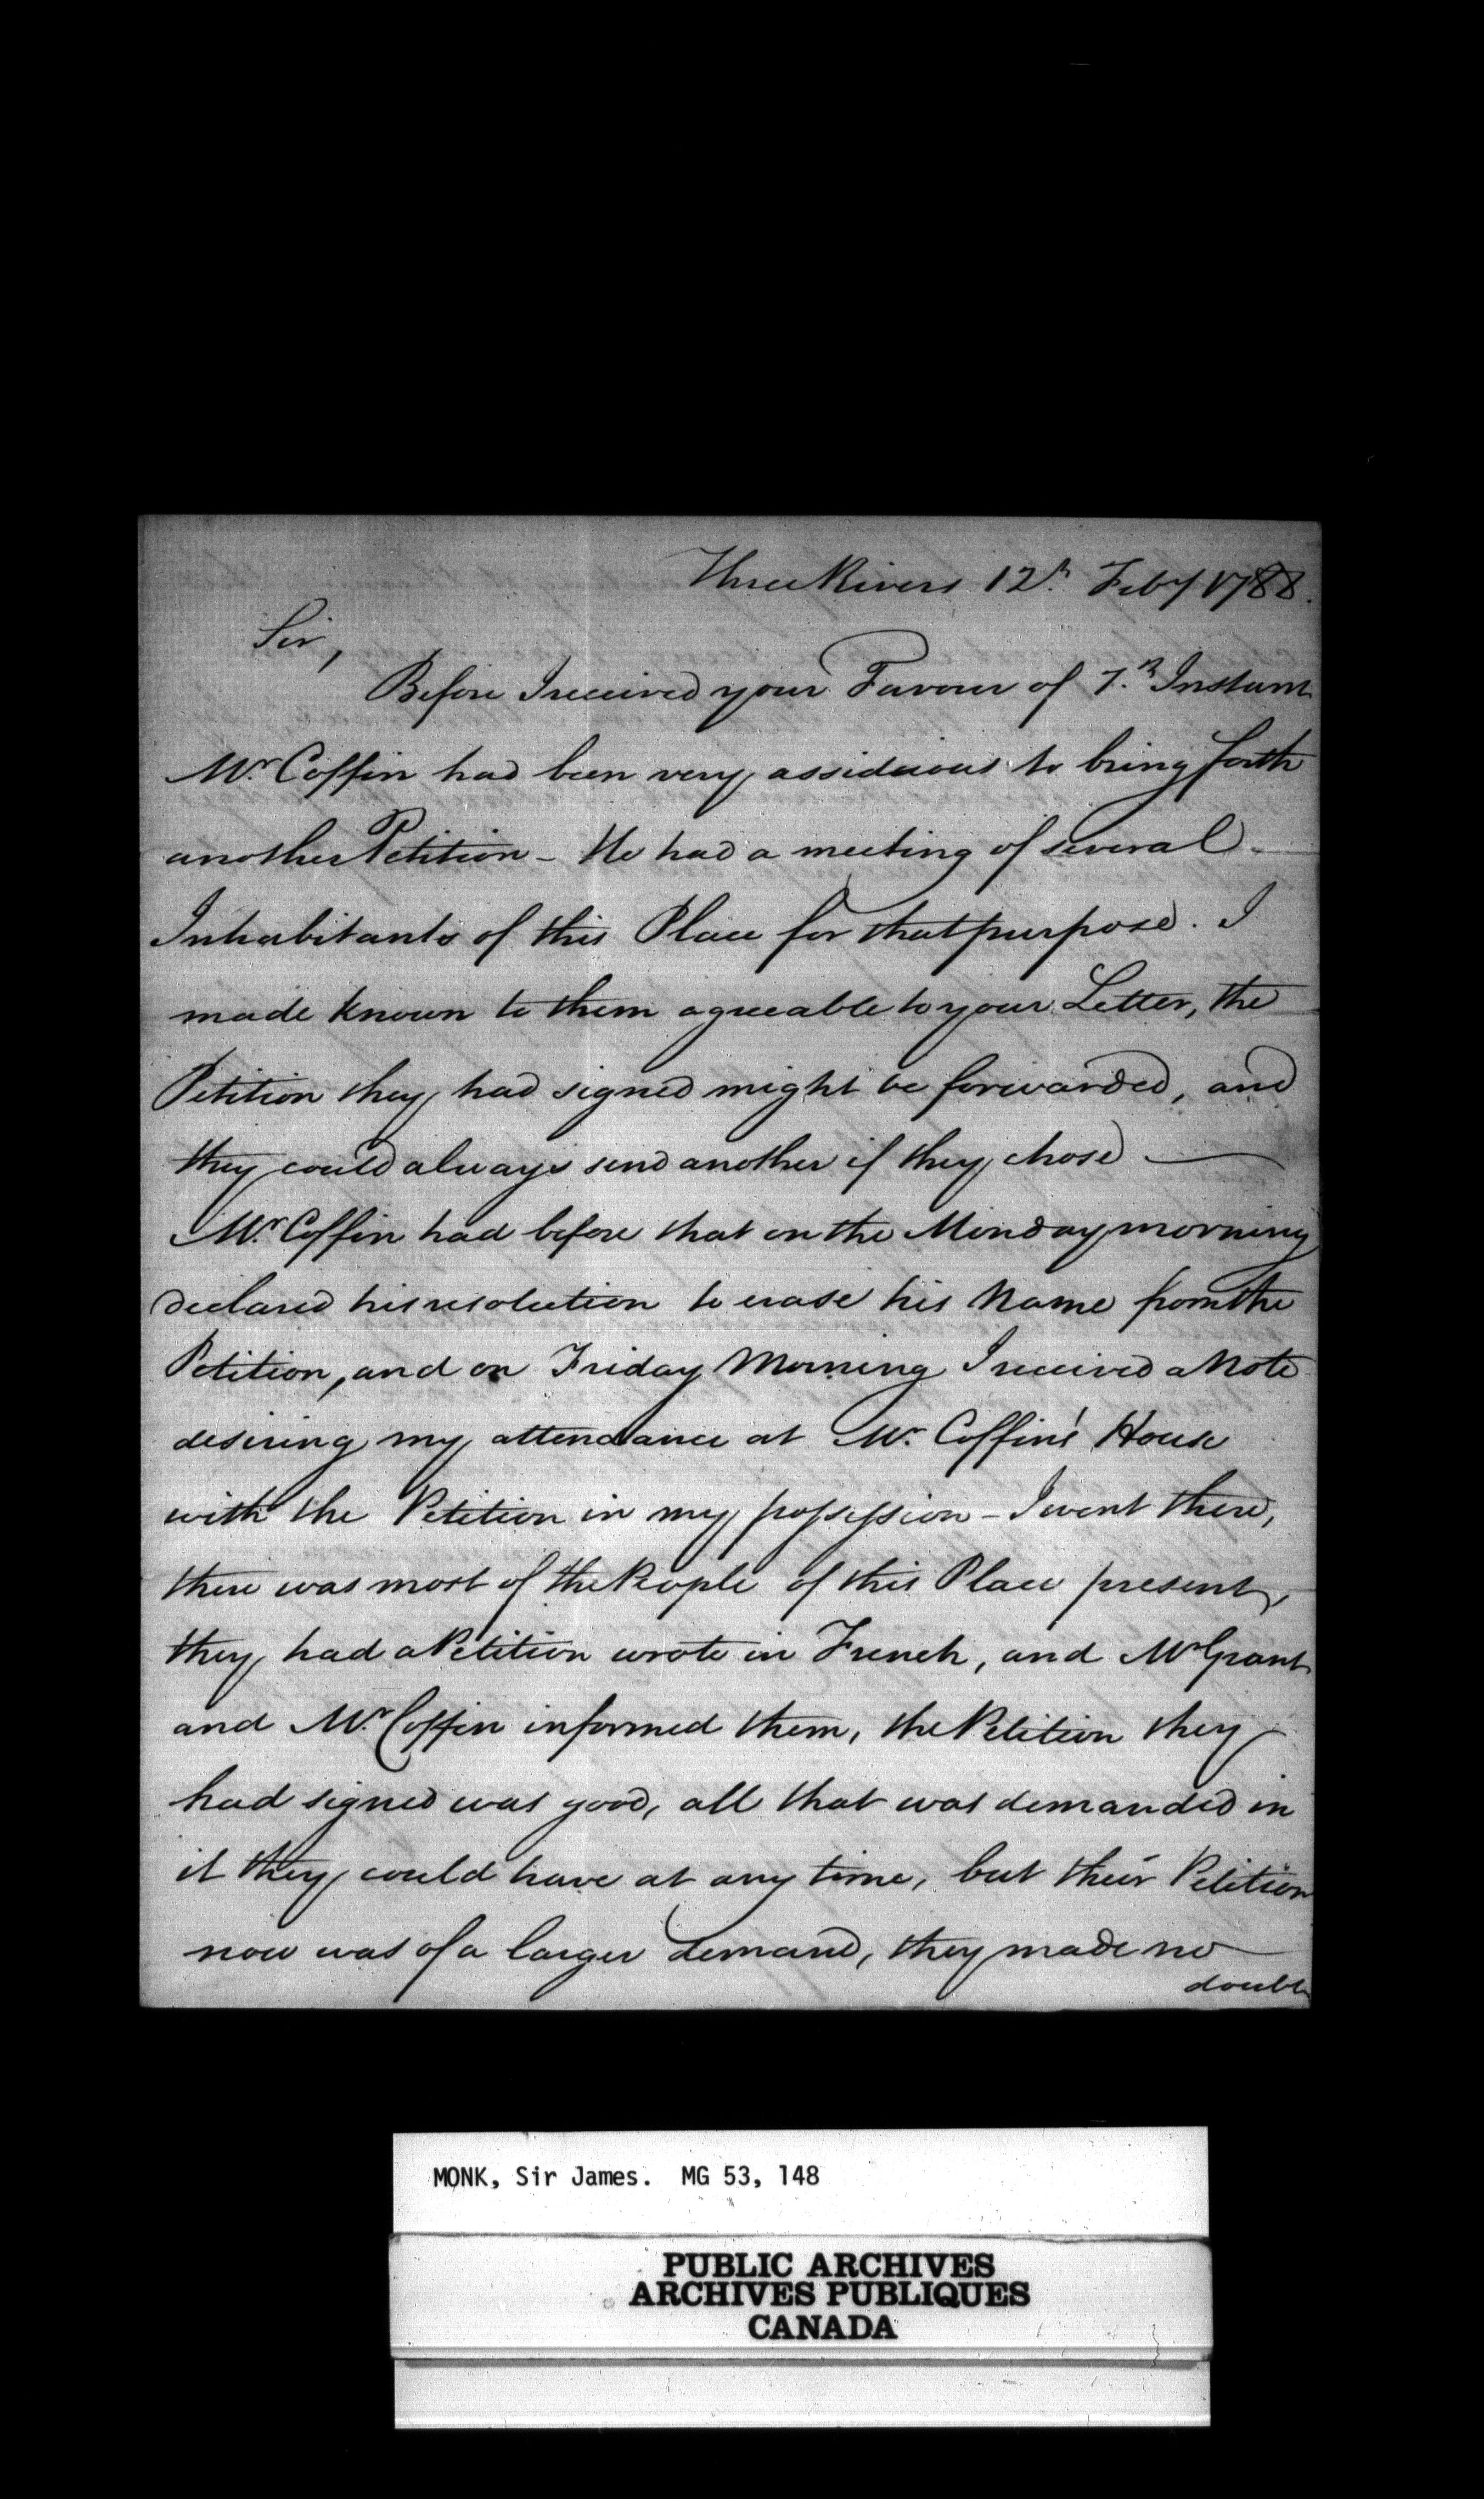 Three Rivers 12th Feby 1788.
Sir,
Before I received your Favour of 7th Instant
Mr. Coffin had been very assiduous to bring forth
another Petition - He had a meeting of several
Inhabitants of this Place for that purpose. I
made known to them agreeable to your Letter, the
Petition they had signed might be forwarded, and
they could always send another if they chose —
Mr. Coffin had before that on the Monday morning
declared his resolution to erase his Name from the
Petition, and on Friday Morning I received a Note
desiring my attendance at Mr. Coffin's House
with the Petition in my possession - I went there,
there was most of the People of this Place present,
they had a Petition wrote in French, and Mr Grant
and Mr. Coffin informed them, the Petition they
had signed was good, all that was demanded in
it they could have at any time, but their Petition
now was of a larger demand, they made no
doubt
MONK, Sir James. MG 53, 148
PUBLIC ARCHIVES
ARCHIVES PUBLIQUES
CANADA